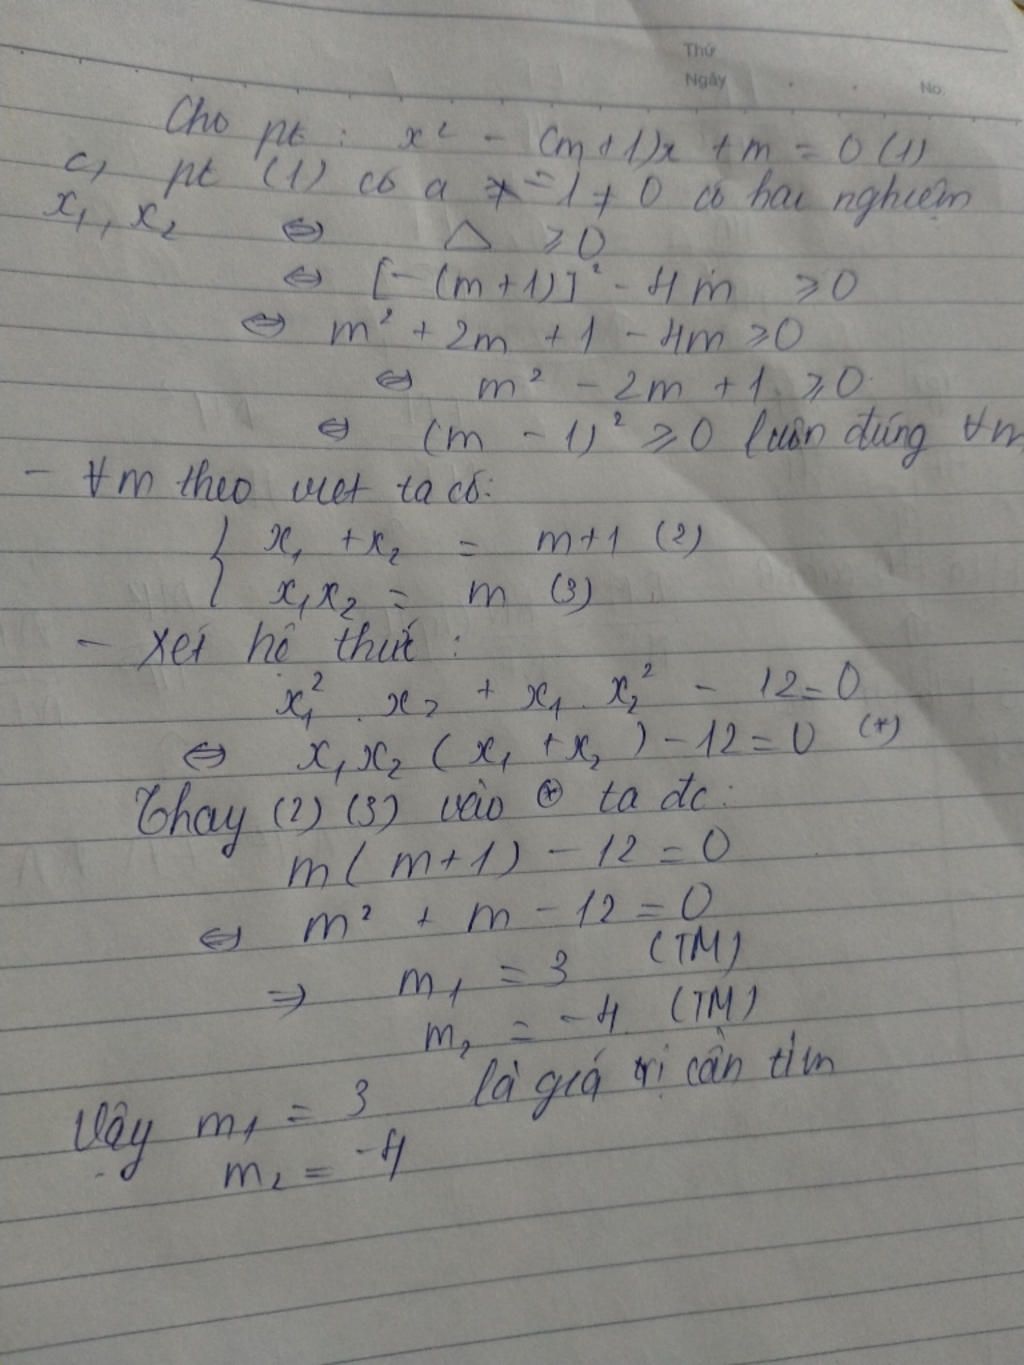 Thứ
Ngày . . No:
Cho pt : x² - (m+1)x + m = 0 (1)
c, pt (1) có a = 1 ≠ 0 có hai nghiệm
x₁, x₂ ⇔ Δ ≥ 0
⇔ [-(m+1)]² - 4m ≥ 0
⇔ m² + 2m + 1 - 4m ≥ 0
⇔ m² - 2m + 1 ≥ 0
⇔ (m - 1)² ≥ 0 luôn đúng ∀m
- ∀m theo viet ta có:
{ x₁ + x₂ = m+1 (2)
x₁x₂ = m (3)
- Xét hệ thức :
x₁² . x₂ + x₁ . x₂² - 12 = 0
⇔ x₁x₂ ( x₁ + x₂ ) - 12 = 0 (*)
Thay (2) (3) vào (*) ta đc:
m( m+1) - 12 = 0
⇔ m² + m - 12 = 0
⇒ m₁ = 3 (TM)
m₂ = -4 (TM)
Vậy m₁ = 3 là giá trị cần tìm
m₂ = -4